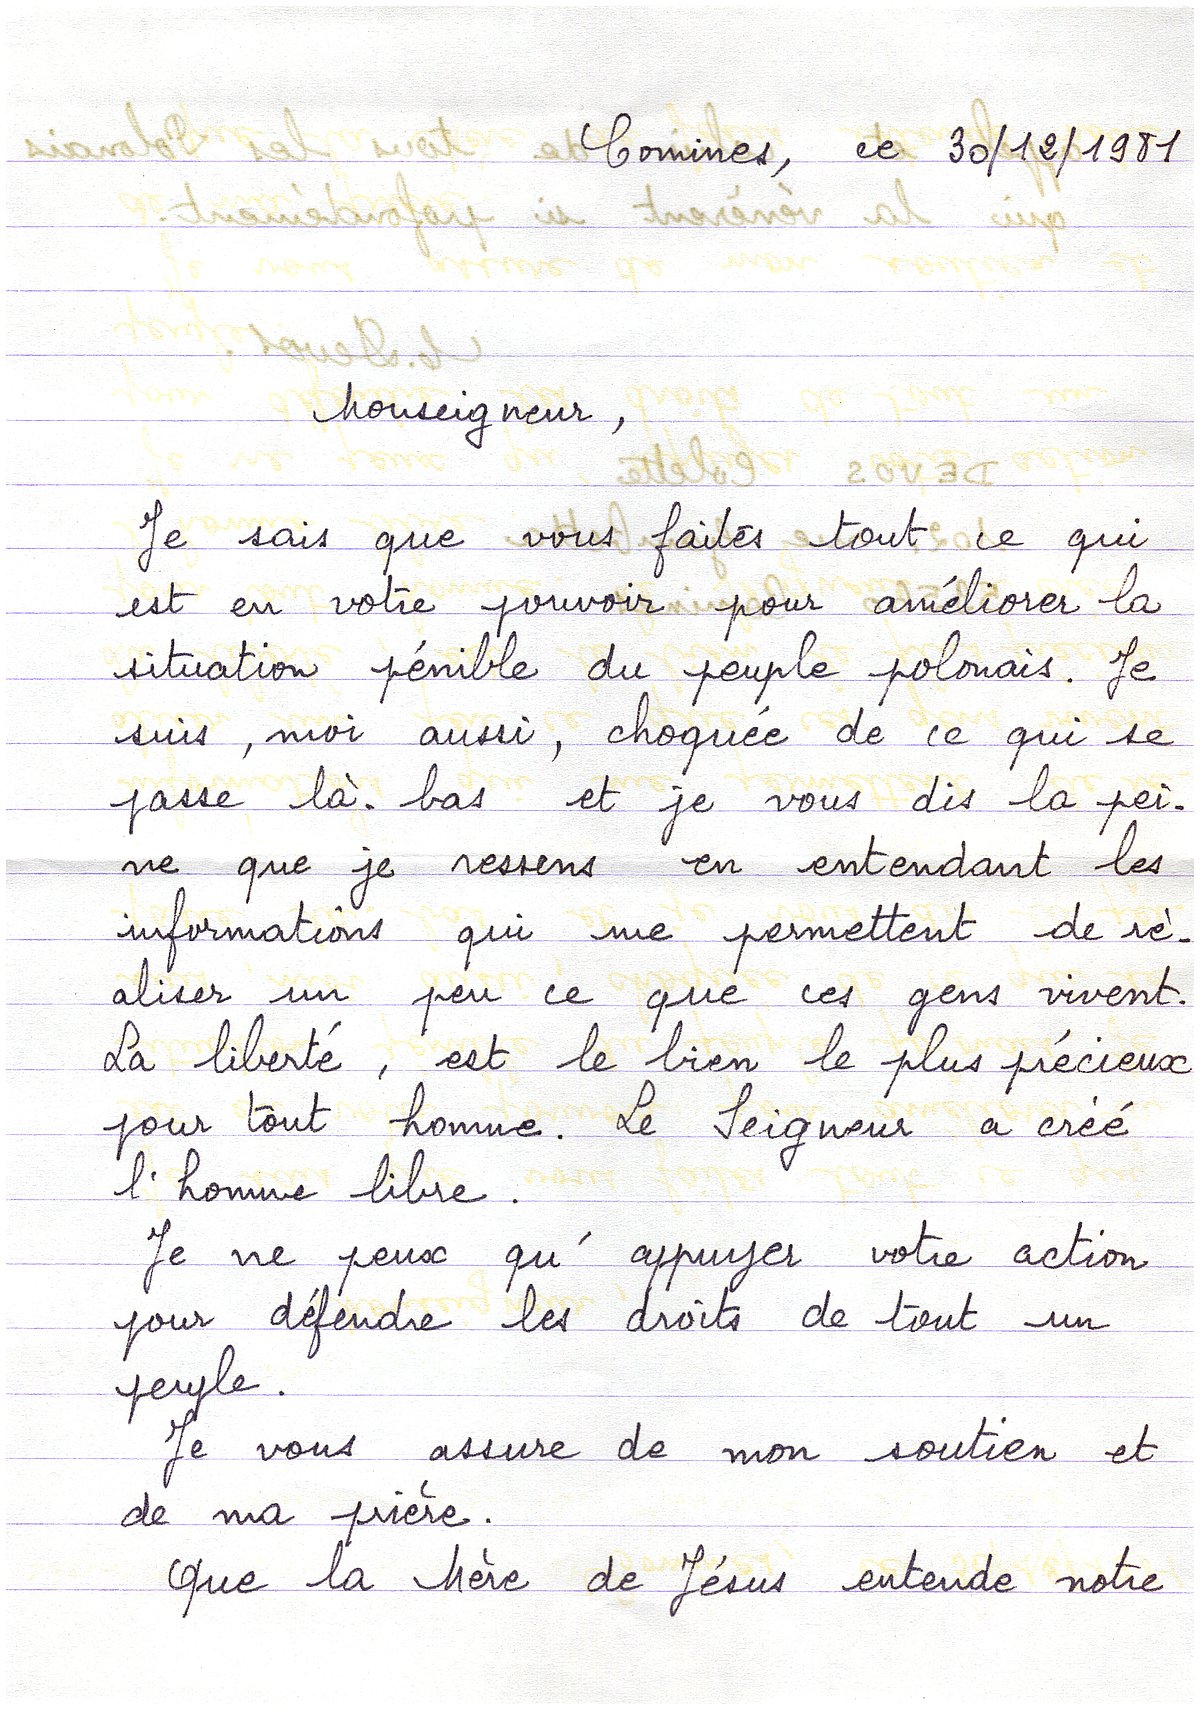 Comines, ce 30/12/1981
Monseigneur,
Je sais que vous faites tout ce qui
est en votre pouvoir pour améliorer la
situation pénible du peuple polonais. Je
suis, moi aussi, choquée de ce qui se
passe là-bas et je vous dis la pei-
ne que je ressens en entendant les
informations qui me permettent de ré-
aliser un peu ce que ces gens vivent.
La liberté, est le bien le plus précieux
pour tout homme. Le Seigneur a créé
l'homme libre.
Je ne peux qu'appuyer votre action
pour défendre les droits de tout un
peuple.
Je vous assure de mon soutien et
de ma prière.
Que la Mère de Jésus entende notre